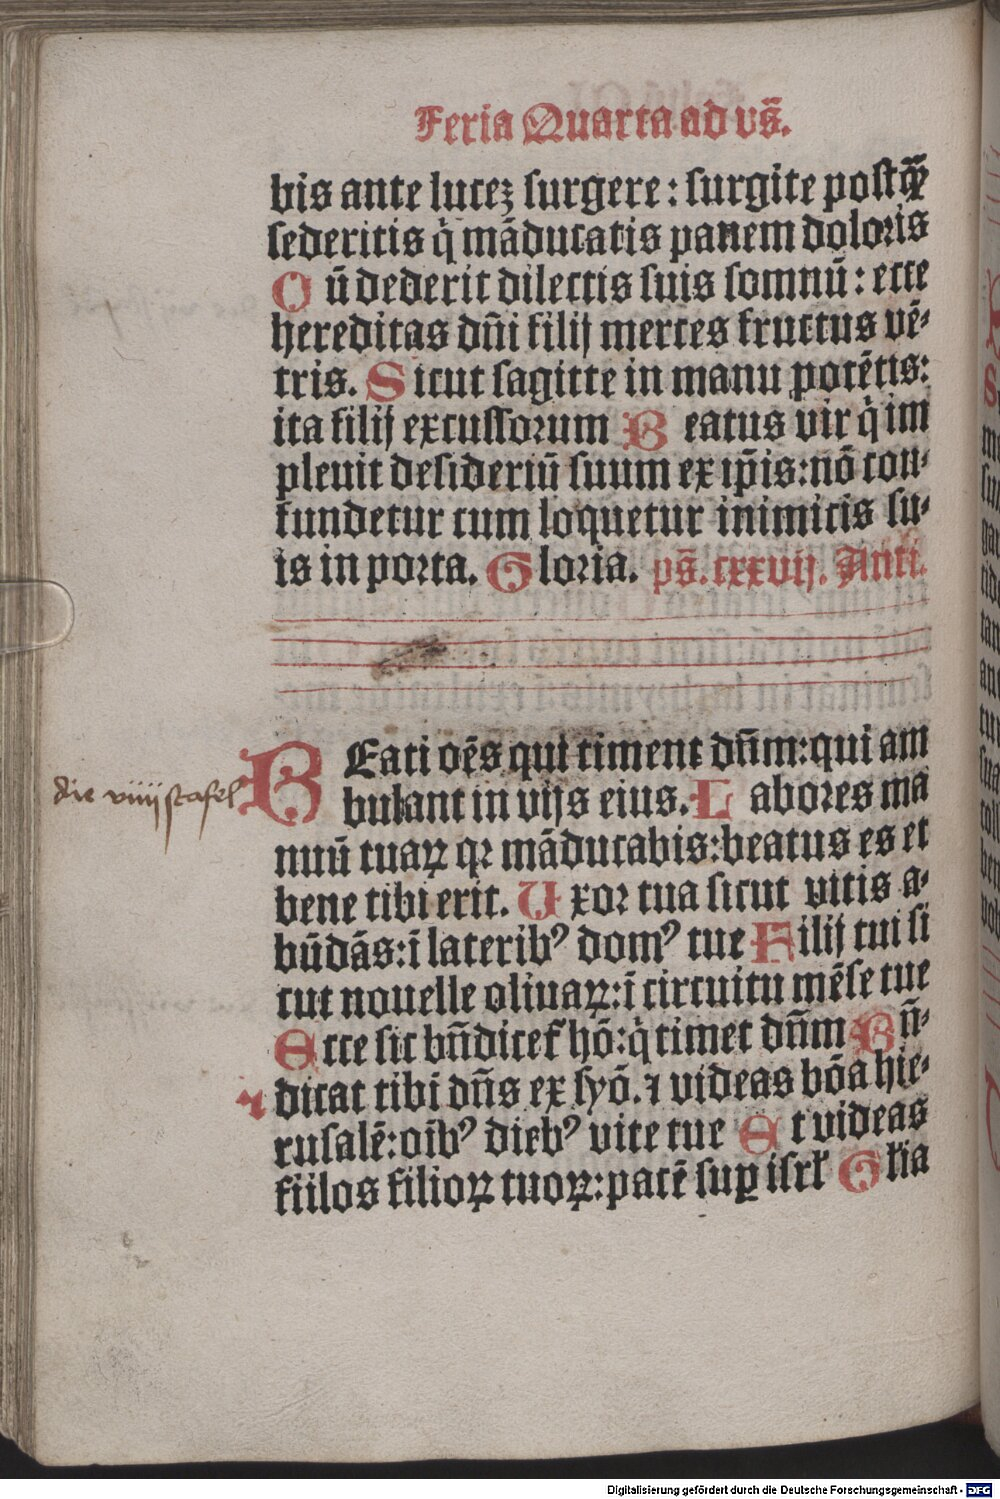 Feria Quarta ad vs̄.
bis ante lucez surgere : surgite postꝙ̄
sederitis q̇ māducatis panem doloris
Cū dederit dilectis suis somnū : ecce
hereditas dn̄i filij merces fructus vē⸗
tris. Sicut sagitte in manu potētis:
ita filij excussorum Beatus vir q̇ im
pleuit desideriū suum ex ip̄is: nō con⸗
fundetur cum loquetur inimicis su⸗
is in porta. Gloria. ps̄. cxxvij. Anti.
BEati oēs qui timent dn̄m: qui am
die viiij stafel
bulant in vijs eius. Labores ma
nuū tuaꝝ qꝛ māducabis: beatus es et
bene tibi erit. Uxor tua sicut vitis a⸗
būdās: ī lateribꝰ domꝰ tue Filij tui si
cut nouelle oliuaꝝ: ī circuitu mēse tue
Ecce sic bn̄dicet᷑ hō: q̇ timet dn̄m Bn̄⸗
dicat tibi dn̄s ex syō. ⁊ videas bōa hie⸗
rusalē: oīb⁹ dieb⁹ vite tue Et videas
fiilos filioꝝ tuoꝝ: pacē suꝑ isrł Gl̄ia
Digitalisierung gefördert durch die Deutsche Forschungsgemeinschaft - DFG